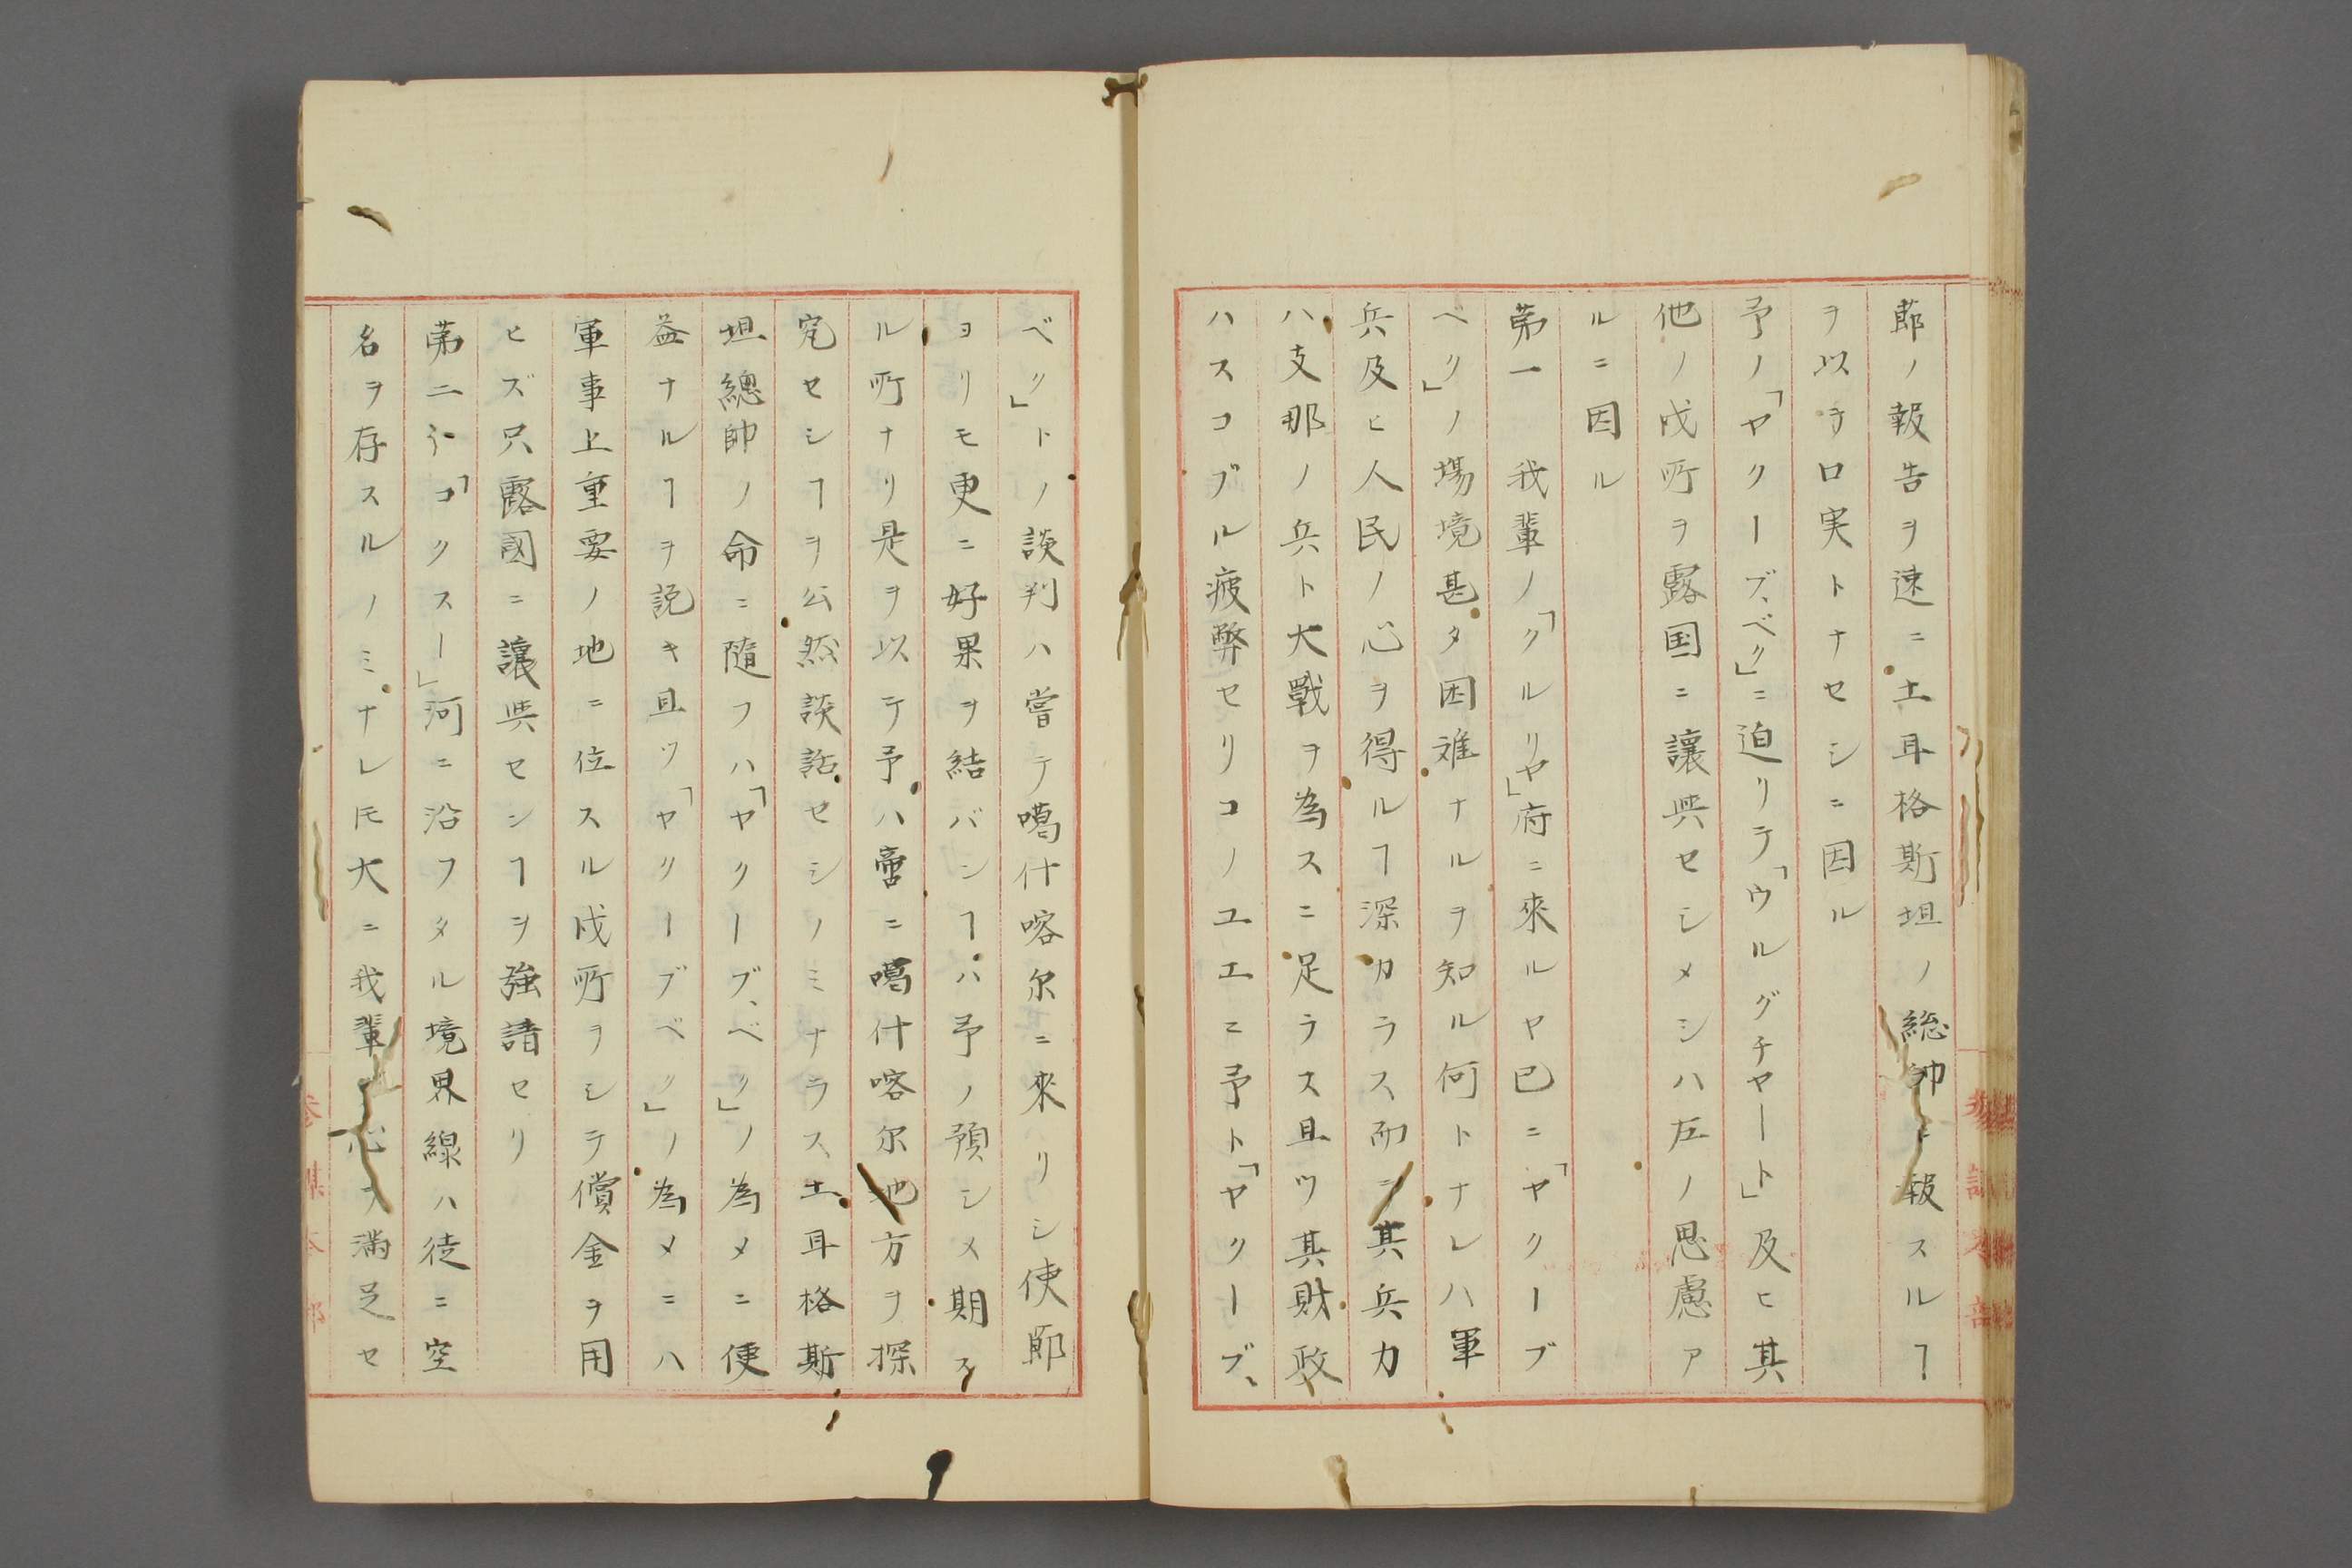 節ノ報告ヲ速ニ土耳格斯坦ノ総帥ニ報スルヿ
ヲ以テ口実トナセシニ因ル
予ノ「ヤクーブ、ベク」ニ迫リテ「ウルグチヤート」及ヒ其
他ノ戍所ヲ露国ニ讓與セシメシハ左ノ思慮ア
ルニ因ル
第一 我輩ノ「クルリヤ」府ニ來ルヤ已ニ「ヤクーブ
ベク」ノ場境甚タ困难ナルヲ知ル何トナレハ軍
兵及ヒ人民ノ心ヲ得ルヿ深カラス而シ其兵力
ハ支那ノ兵ト大戰ヲ為スニ足ラス且ツ其財政
ハスコブル疲弊セリコノユエニ予ト「ヤクーブ、
ベク」トノ談判ハ嘗テ噶什喀尔ニ來リシ使節
ヨリモ更ニ好果ヲ結バンヿハ予ノ預シメ期ス
ル所ナリ是ヲ以テ予ハ啻ニ噶什喀尔地方ヲ探
究セシヿヲ公然談話セシノミナラス土耳格斯
坦總帥ノ命ニ隨フハ「ヤクーブ、ベク」ノ為メニ便
益ナルヿヲ説キ且ツ「ヤクーブベク」ノ為メニハ
軍事上重要ノ地ニ位スル戍所ヲシテ償金ヲ用
ヒズ只露國ニ讓與センヿヲ強請セリ
第二 「コクスー」河ニ沿フタル境界線ハ徒ニ空
名ヲ存スルノミナレ𪜈大ニ我輩ノ心ヲ滿足セ